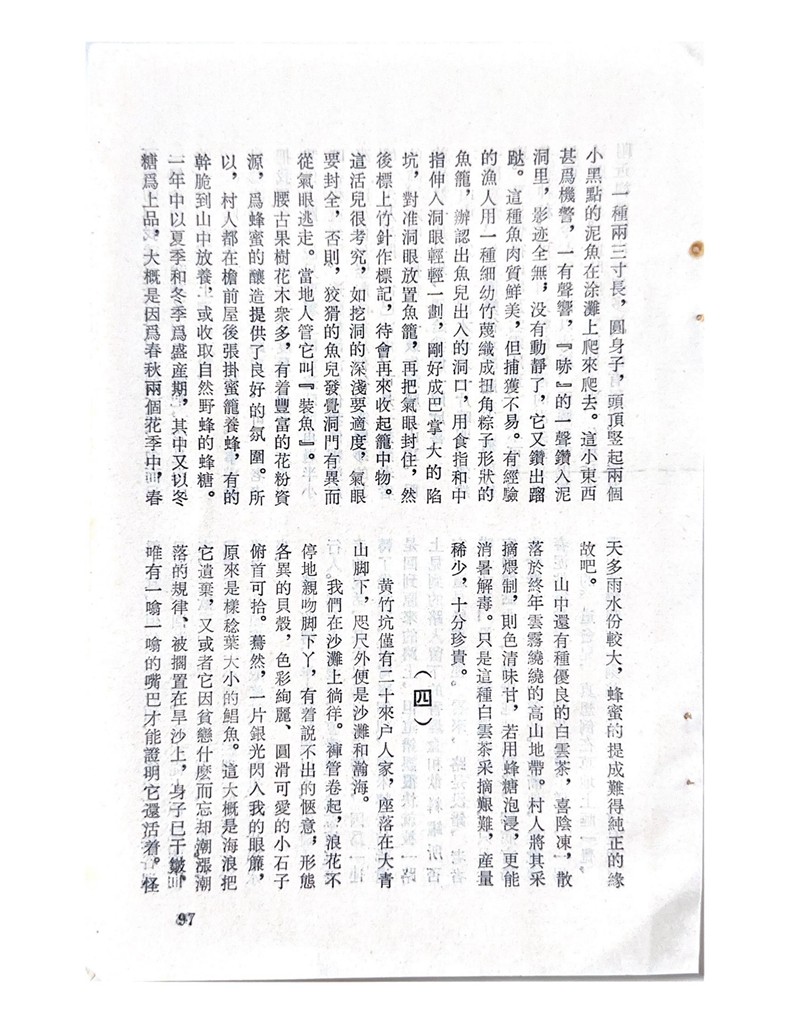 一種兩三寸長，圓身子，頭頂竪起兩個
小黑點的泥魚在涂灘上爬來爬去。這小東西
甚爲機警，一有聲響，『哧』的一聲鑽入泥
洞里，影迹全無，没有動靜了，它又鑽出蹓
跶。這種魚肉質鮮美，但捕獲不易。有經驗
的漁人用一種細幼竹蔑織成扭角粽子形狀的
魚籠，辦認出魚兒出入的洞口，用食指和中
指伸人洞眼輕輕一劃，剛好成巴掌大的陷
坑，對准洞眼放置魚籠，再把氣眼封住，然
後標上竹針作標記，待會再來收起籠中物。
這活兒很考究，如挖洞的深淺要適度，氣眼
要封全，否則，狡猾的魚兒發覺洞門有異而
從氣眼逃走。當地人管它叫『裝魚』。
腰古果樹花木衆多，有着豐富的花粉資
源，爲蜂蜜的釀造提供了良好的氛圍。所
以，村人都在檐前屋後張掛蜜籠養蜂，有的
幹脆到山中放養，或收取自然野蜂的蜂糖。
一年中以夏季和冬季爲盛産期，其中又以冬
糖爲上品，大概是因爲春秋兩個花季中，春
天多雨水份較大，蜂蜜的提成難得純正的緣
故吧。
山中還有種優良的白雲茶，喜陰凍，散
落於終年雲霧繞繞的高山地帶。村人將其采
摘煨制，則色清味甘，若用蜂糖泡浸，更能
消暑解毒。只是這種白雲茶采摘艱難，産量
稀少，十分珍貴。
（四）
黄竹坑僅有二十來户人家，座落在大青
山脚下，咫尺外便是沙灘和瀚海。
我們在沙灘上徜徉。褲管卷起，浪花不
停地親吻脚下丫，有着説不出的愜意，形態
各異的貝殼，色彩絢麗、圓滑可愛的小石子
俯首可拾。驀然，一片銀光閃入我的眼簾，
原來是樣稔葉大小的鯧魚。這大概是海浪把
它遺棄，又或者它因貧戀什麽而忘却潮漲潮
落的規律、被擱置在旱沙上，身子已干皺，
唯有一噏一噏的嘴巴才能證明它還活着。怪
97